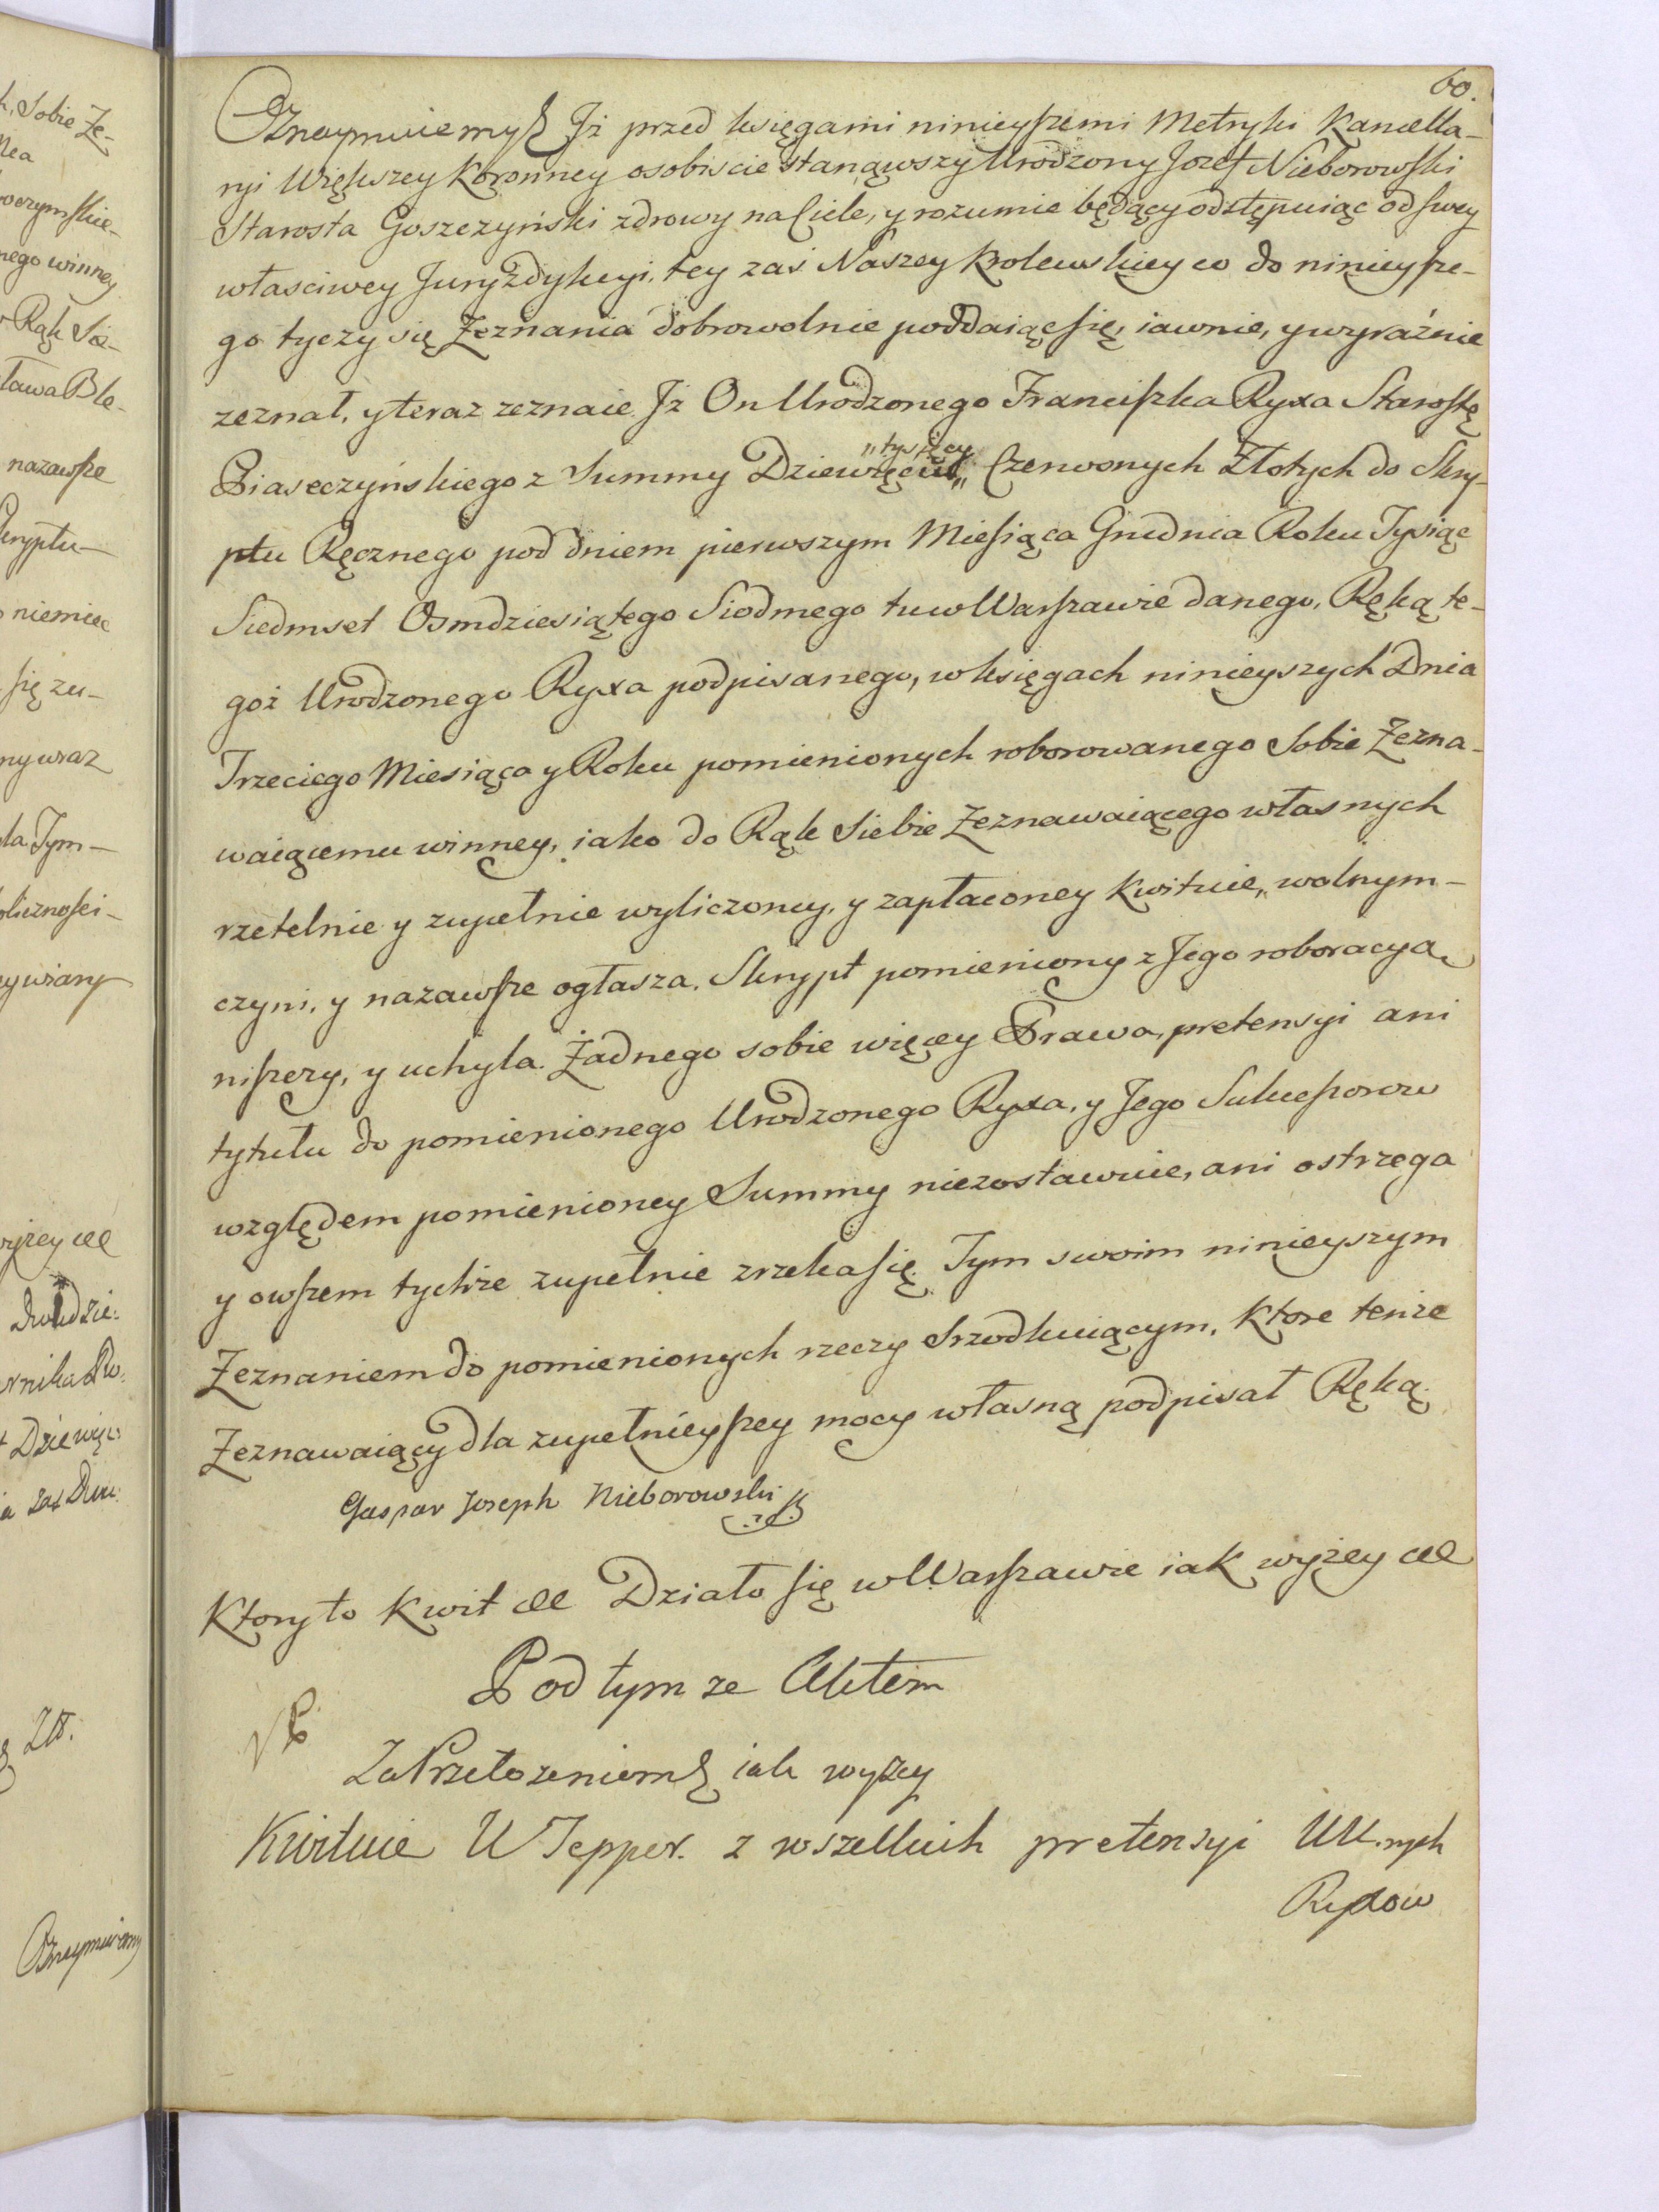 60.
Oznaymuiemy Jż przed księgami ninieyszemi Metryki Kancella-
ryi Większey Koronney osobiscie stanąwszy Urodzony Jozef Nieborowski
Starosta Goszczyński zdrowy na Ciele, y rozumie będący odstępuiąc od swey
własciwey Juryzdykcyi, tey zaś Naszey Krolewskiey co do ninieysze-
go tyczy się Zeznania dobrowolnie poddaiąc się, iawnie, y wyraźnie
zeznał, y teraz zeznaie Jż On Urodzonego Franciszka Ryxa Starostę
"tysięcy
Piaseczyńskiego z Summy Dziewięciu" Czerwonych Złotych do Skry-
ptu Ręcznego pod dniem pierwszym Miesiąca Grudnia Roku Tysiąc
Siedmset Osmdziesiątego Siodmego tu w Warszawie danego, Ręką te-
goż Urodzonego Ryxa podpisanego, w księgach ninieyszych Dnia
Trzeciego Miesiąca y Roku pomienionych roborowanego Sobie Zezna-
waiącemu winney, iako do Rąk Siebie Zeznawaiącego własnych
rzetelnie y zupełnie wyliczoney, y zapłaconey Kwituie, wolnym-
czyni, y nazawsze ogłasza. Skrypt pomieniony z Jego roboracyą
niszczy, y uchyla. Żadnego sobie więcey Prawa, pretensyi ani
tytułu do pomienionego Urodzonego Ryxa, y Jego Sukcessorow
względem pomienioney Summy niezostawuie, ani ostrzega
y owszem tychże zupełnie zrzeka się. Tym swoim ninieyszym
Zeznaniem do pomienionych rzeczy Srzodkuiącym, Ktore tenże
Zeznawaiący dla zupełnieyszey mocy własną podpisał Ręką.
Gaspar Joseph Nieborowski
Ktory to Kwit etc Działo się w Warszawie iak wyżey etc
Pod tym ze Aktem
Za Przełozeniem iak wyżey
Kwituie U Tepper z wszelkich pretensyi UU.nych
Ryxow